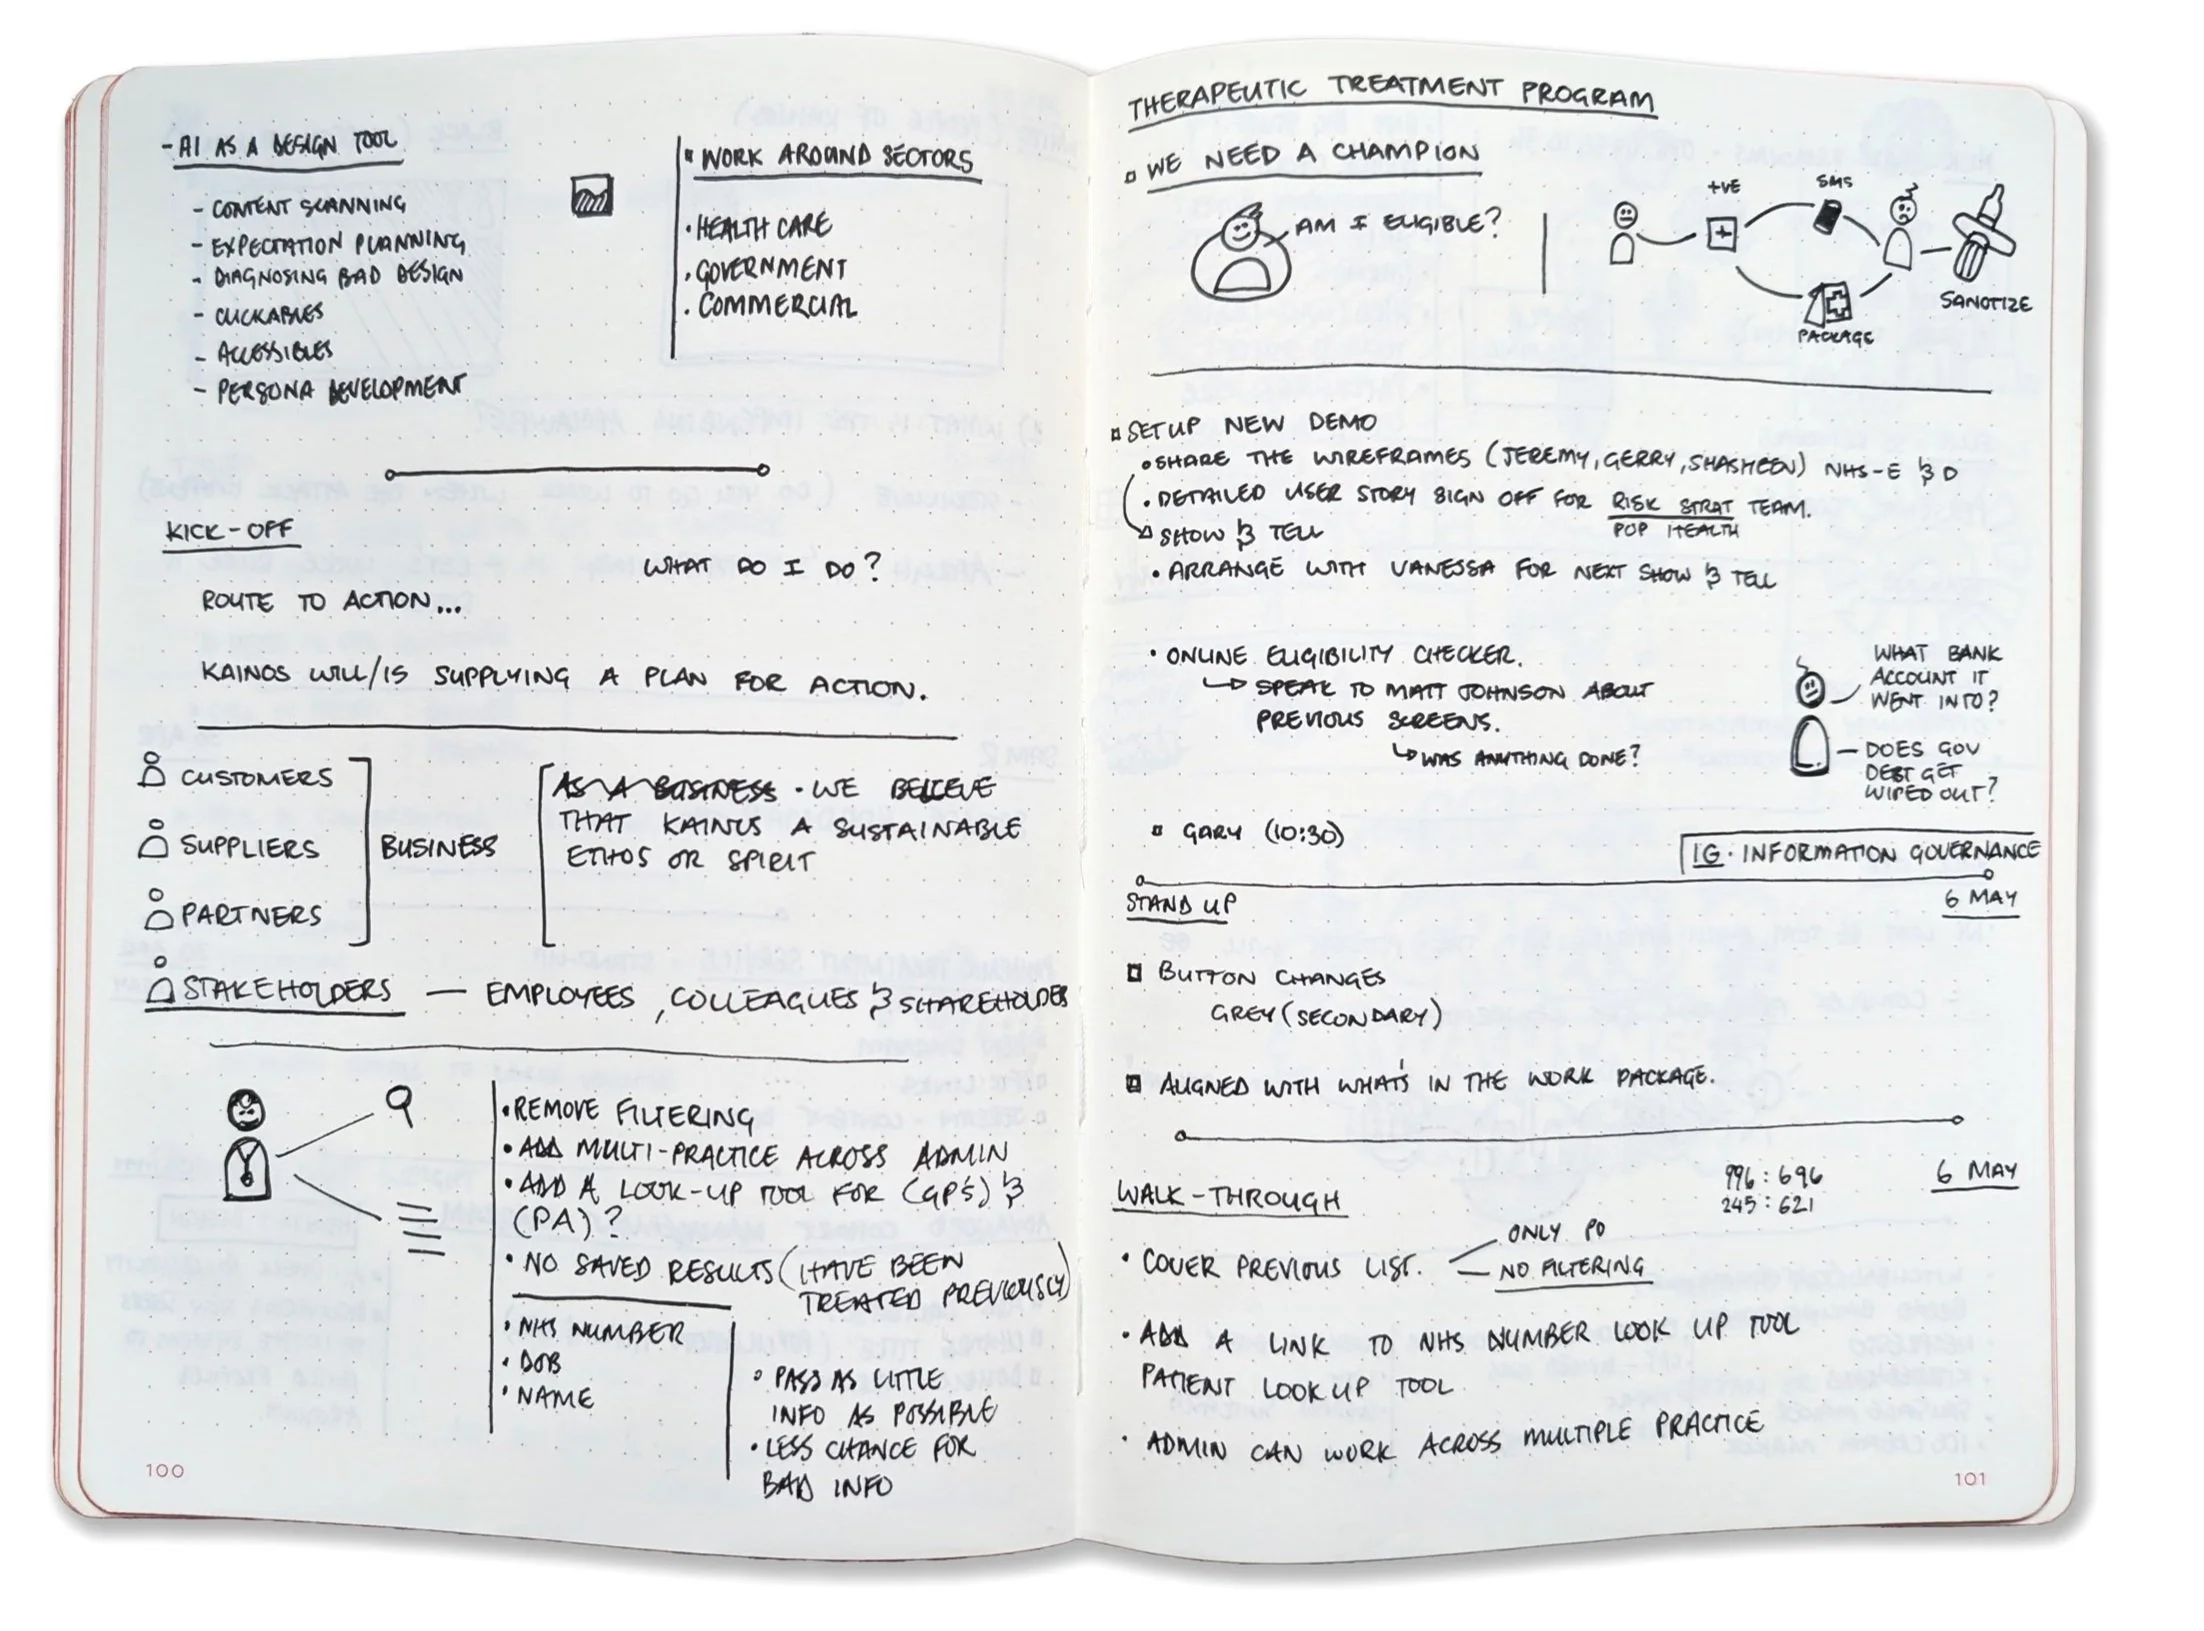 - AI AS A DESIGN TOOL
- CONTENT SCANNING
- EXPECTATION PLANNING
- DIAGNOSING BAD DESIGN
- CLICKABLES
- ACCESSIBLES
- PERSONA DEVELOPMENT
WORK AROUND SECTORS
• HEALTH CARE
• GOVERNMENT
• COMMERCIAL
KICK-OFF
WHAT DO I DO?
ROUTE TO ACTION...
KAINOS WILL/IS SUPPLYING A PLAN FOR ACTION.
CUSTOMERS
SUPPLIERS
PARTNERS
BUSINESS
AS A BUSINESS • WE BELIEVE
THAT KAINOS A SUSTAINABLE
ETHOS OR SPIRIT
STAKEHOLDERS — EMPLOYEES, COLLEAGUES & SHAREHOLDER
• REMOVE FILTERING
• ADD MULTI-PRACTICE ACROSS ADMIN
• ADD A LOOK-UP TOOL FOR (GP'S) &
(PA)?
• NO SAVED RESULTS (HAVE BEEN
TREATED PREVIOUSLY)
• NHS NUMBER
• DOB
• NAME
• PASS AS LITTLE
INFO AS POSSIBLE
• LESS CHANCE FOR
BAD INFO
100
THERAPEUTIC TREATMENT PROGRAM
WE NEED A CHAMPION
AM I ELIGIBLE?
+VE
SMS
PACKAGE
SANOTIZE
SETUP NEW DEMO
• SHARE THE WIREFRAMES (JEREMY, GERRY, SHASHEEN) NHS-E & D
• DETAILED USER STORY SIGN OFF FOR RISK STRAT TEAM.
POP HEALTH
SHOW & TELL
• ARRANGE WITH VANESSA FOR NEXT SHOW & TELL
• ONLINE ELIGIBILITY CHECKER.
↳ SPEAK TO MATT JOHNSON ABOUT
PREVIOUS SCREENS.
↳ WAS ANYTHING DONE?
WHAT BANK
ACCOUNT IT
WENT INTO?
DOES GOV
DEBT GET
WIPED OUT?
GARY (10:30)
IG • INFORMATION GOVERNANCE
STAND UP
6 MAY
BUTTON CHANGES
GREY (SECONDARY)
ALIGNED WITH WHAT'S IN THE WORK PACKAGE.
WALK-THROUGH
996:696
245:621
6 MAY
• COVER PREVIOUS LIST.
ONLY PO
NO FILTERING
• ADD A LINK TO NHS NUMBER LOOK UP TOOL
PATIENT LOOK UP TOOL
• ADMIN CAN WORK ACROSS MULTIPLE PRACTICE
101